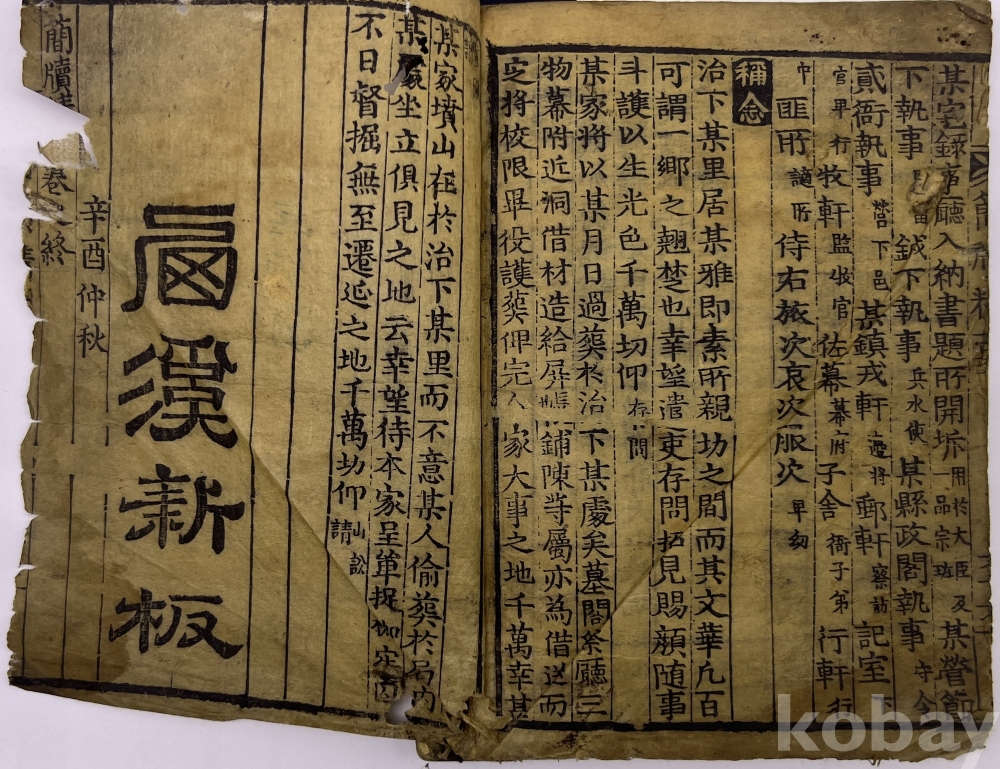 某宅錄事廳入納書題所開坼 一用於大臣及 品宗班 某營節
下執事 鉞下執事 兵水使 某縣政閤執事 守令
貳衙執事 營下邑 某鎮戎軒 邊將 郵軒 察訪 記室
官早行 牧軒 監牧官 佐幕 幕府 子舍 衙子弟 行軒
匪所 謫所 侍右旅次哀次服次 卑幼
稱念
治下某里居某雅即素所親切之間而其文華凡百
可謂一鄉之翹楚也幸望遣吏存問招見賜顔隨事
斗護以生光色千萬切仰 存問
某家將以某月日過葬於治下某處矣墓閣祭廳三
物幕附近洞借材造給屏帳鋪陳等屬亦為借送而
定將校限畢役護葬仰完人家大事之地千萬幸甚
某家墳山在於治下某里而不意某人偷葬於局內
某家坐立俱見之地云幸望待本家呈單捉枷定內
不日督掘無至遷延之地千萬切仰 山訟請
簡牘 卷之終
辛酉仲秋
新板
kobay